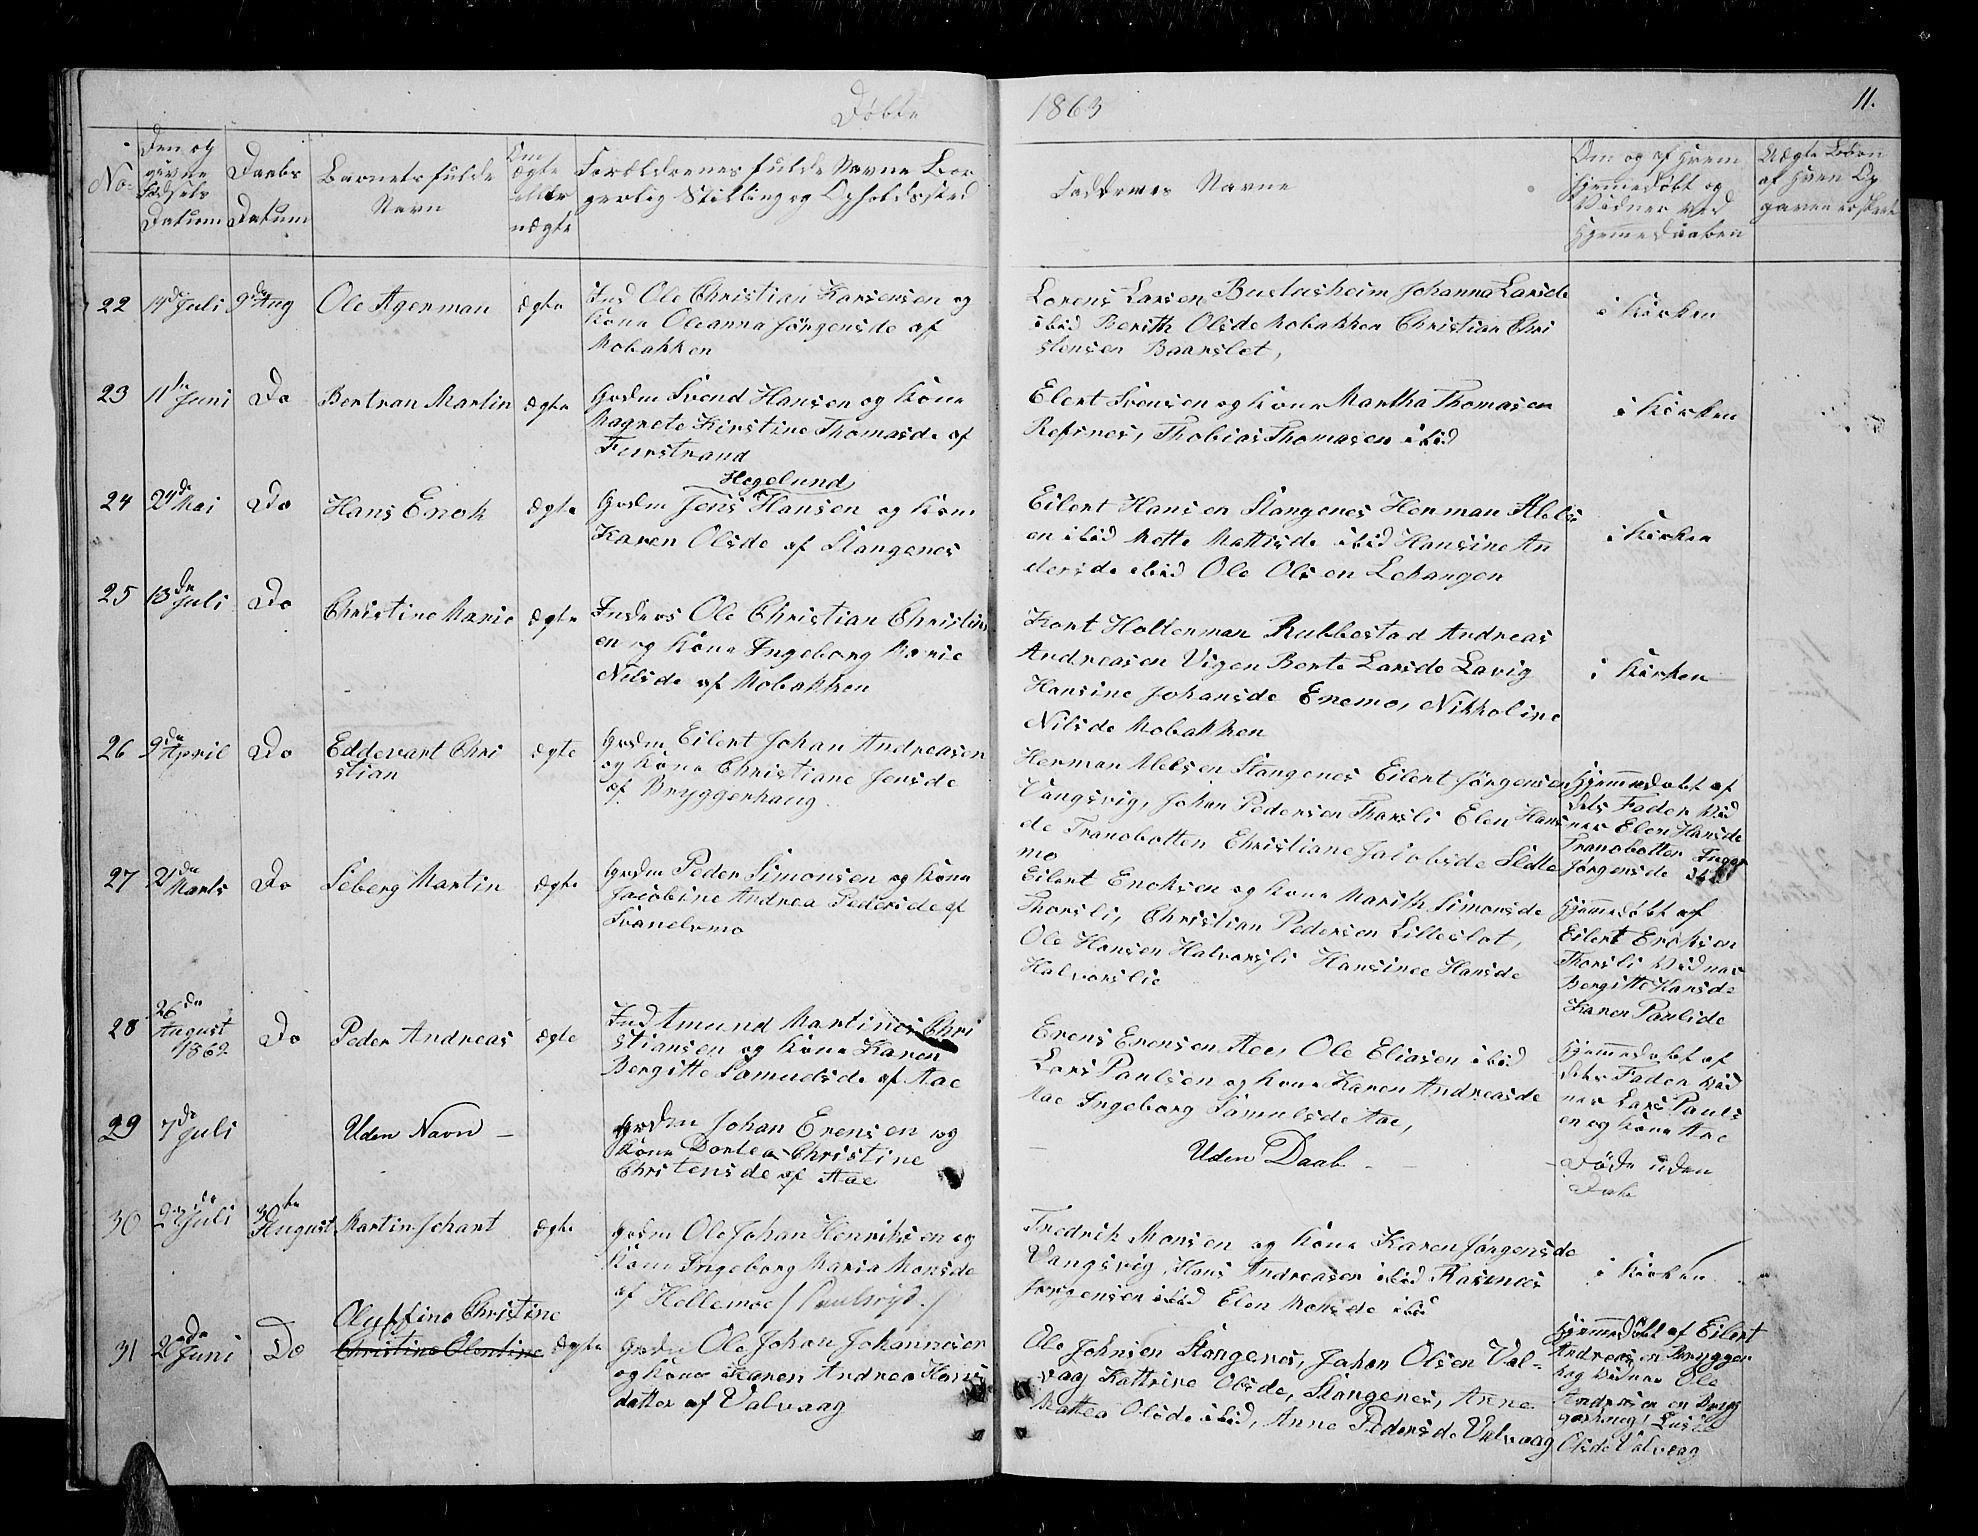 Døbte 1863 11.
No. Den og givne Fødsels Datum
Daabs Datum
Barnets fulde Navn
Om ægte eller uægte
Forældrenes fulde Navne Bor
gerlig Stilling og Opholdssted
Faddernes Navne
Om og af hvem
Hjemmedøbt og
Vidner ved
Hjemmedaaben
22 Juli 9de Aug Ole Agerman ægte
Ind Ole Christian Karsensen og
Kone Oleanna Jørgensde af
Mobakken
Lorens Larsen Bustusheim Johanna Larsde
ibid Berith Olsde Mobakken Christian Chri
stensen Baarslet,
i Kirken
23 11te Juni Do Bertran Martin ægte
Grdm Svend Hansen og Kone
Magrete Kirstine Thomasde af
Furstrand
Elert Svensen og Kone Martha Thomasen
Refsnes, Thobias Thomasen ibid
i Kirken
24 Mai Do Hans Enok ægte
Hegelund
Grdm Jens Hansen og Kone
Karen Olsde af Stangenes
Eilert Hansen Stangenes Herman Abels
en ibid Mette Mattisde ibid Hansine An
dersde ibid Ole Olsen Lekangen
i Kirken
25 13de Juli Do Christine Marie ægte
Inders Ole Christian Christins
en og Kone Ingeborg Marie
Nilsde af Mobakken
Kort Holterman Rubbestad Andreas
Andreasen Vigen Berte Larsde Lavig
Hansine Johansde Enemo, Nikkoline
Nilsde Mobakken
i Kirken
26 9de April Do Eddevart Chri
stian ægte
Grdm Eilert Johan Andreasen
og Kone Christiane Jensde
af Bryggerhaug
Herman Abelsen Stangenes Eilert Jørgensen
Vangsvig, Johan Pedersen Thorsli Elen Hans
de Tranobotten Christiane Jakobsde Slette
mo
Hjemmedøbt af
dets Fader Vid
ner Elen Hansde
Tranobotten Inger
Jørgensde ibid
27 Marts Do Seberg Martin ægte
Grdm Peder Simonsen og Kone
Jacobine Andrea Pedersde af
Svanelvmo
Eilert Enoksen og Kone Marith Simonsde
Thorsli, Christian Pedersen Lilleslet,
Ole Hansen Halvorsli Hansinee Hansde
Halvorslie
Hjemmedøbt af
Eilert Enoksen
Thorsli Vidner
Bergitte Hansde
Karen Paulsde
28 26de August 1862 Do Peder Andreas ægte
Ind Amund Martines Chri
stiansen og Kone Karen
Bergitte Samuelsde af Aae
Erens Erensen Aae, Ole Eliasen ibid
Lars Paulsen og Kone Karen Andreasde
Aae Ingeborg Samulsde Aae,
Hjemmedøbt af
dets Fader Vid
ner Lars Pauls
en og Kone Aae
29 7de Juli Uden Navn —
Grdm Johan Erensen og
Kone Dortea Christine
Christensde af Aae
— Uden Daab — —
Døde uden
Dab
30 Juli 30te August Martin Johant ægte
Grdm Ole Johan Henriksen og
Kone Ingeborg Maria Monsde
af Hellemoe
Fredrik Monsen og Kone Karen Jørgensde
Vangsvig, Hans Andreasen ibid Rasmus
Jørgensen ibid Elen Monsde ibid
i Kirken
Oluffine Christine
31 Juni Do Christine Olentine ægte
Grdm Ole Johan Johannesen
og Kone Karen Andrea Hans
datter af Valvaag
Ole Johnsen Stangenes, Johan Olsen Val-
vag Kattrine Olsde, Stangenes, Anne
Mattea Olsde ibid, Anne Pedersde Valvaag
Hjemmedøbt af Eilert
Andreasen Brygger
hag Vidner Ole
Andersen Brygg
Olsde Valvaag